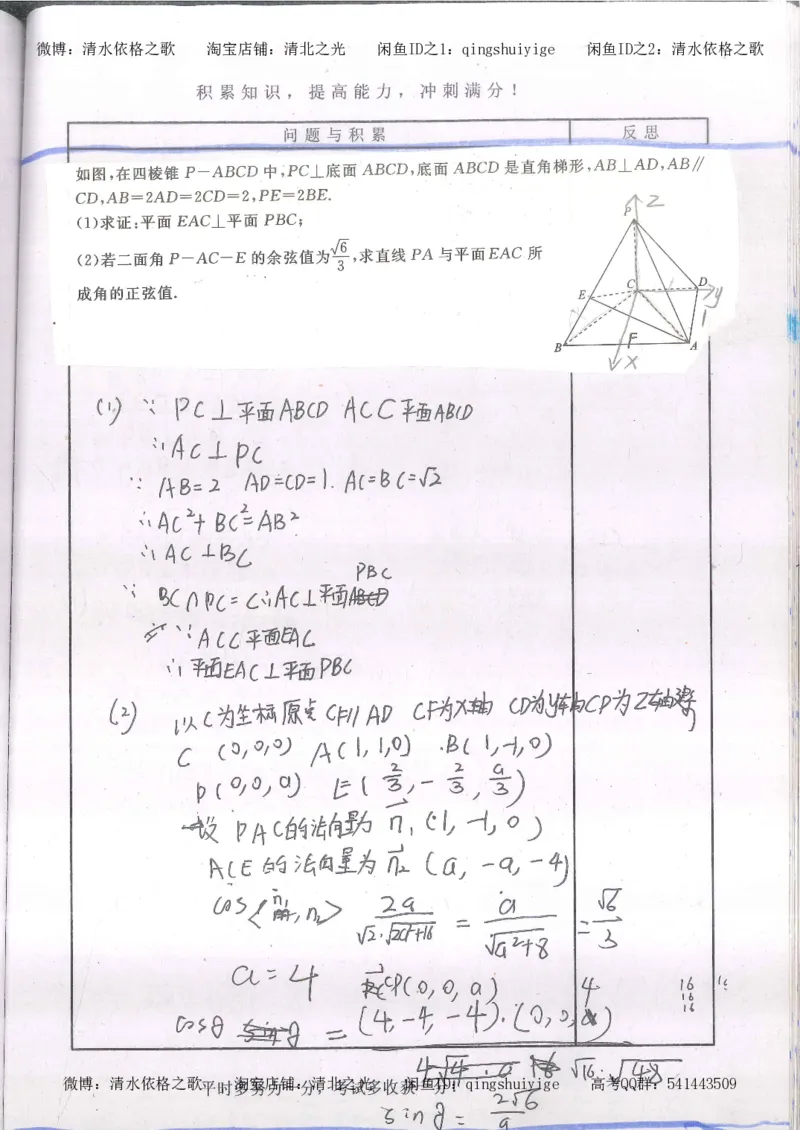 微博：清水依格之歌 淘宝店铺：清北之光 闲鱼ID之1：qingshuiyige 闲鱼ID之2：清水依格之歌
积累知识，提高能力，冲刺满分！
问题与积累 反思
如图,在四棱锥 P－ABCD 中,PC⊥底面 ABCD,底面 ABCD 是直角梯形,AB⊥AD,AB∥
CD,AB=2AD=2CD=2,PE=2BE.
(1)求证:平面 EAC⊥平面 PBC;
(2)若二面角 P－AC－E 的余弦值为√6/3,求直线 PA 与平面 EAC 所
成角的正弦值.
P Z
C D y
E 1
B F A
X
(1) ∵ PC⊥平面ABCD AC⊂平面ABCD
∴AC⊥PC
∵ AB=2 AD=CD=1. AC=BC=√2
∴AC²+BC²=AB²
∴AC⊥BC
PBC
∵ BC∩PC=C∴AC⊥平面ABCD
∵AC⊂平面EAC
∴平面EAC⊥平面PBC
(2) 以C为坐标原点 CF∥AD CF为X轴 CD为y轴CP为Z轴建系
C (0,0,0) A(1,1,0) .B(1,-1,0)
P(0,0,a) E(2/3,-2/3,a/3)
设 PAC的法向量为 n₁(1,-1,0)
ACE的法向量为 n₂(a,-a,-4)
cos<n₁,n₂> 2a/√2·√2a²+16 = a/√a²+8 = √6/3
a=4 CP(0,0,a) 4 16
16
16
cosθ = (4,-4,-4)·(0,0,4)
√16·√48
微博：清水依格之歌 淘宝店铺：清北之光 闲鱼ID1：qingshuiyige 高考QQ群：541443509
平时多努力一分，考试多收获一分！
sinθ= 2√6/9